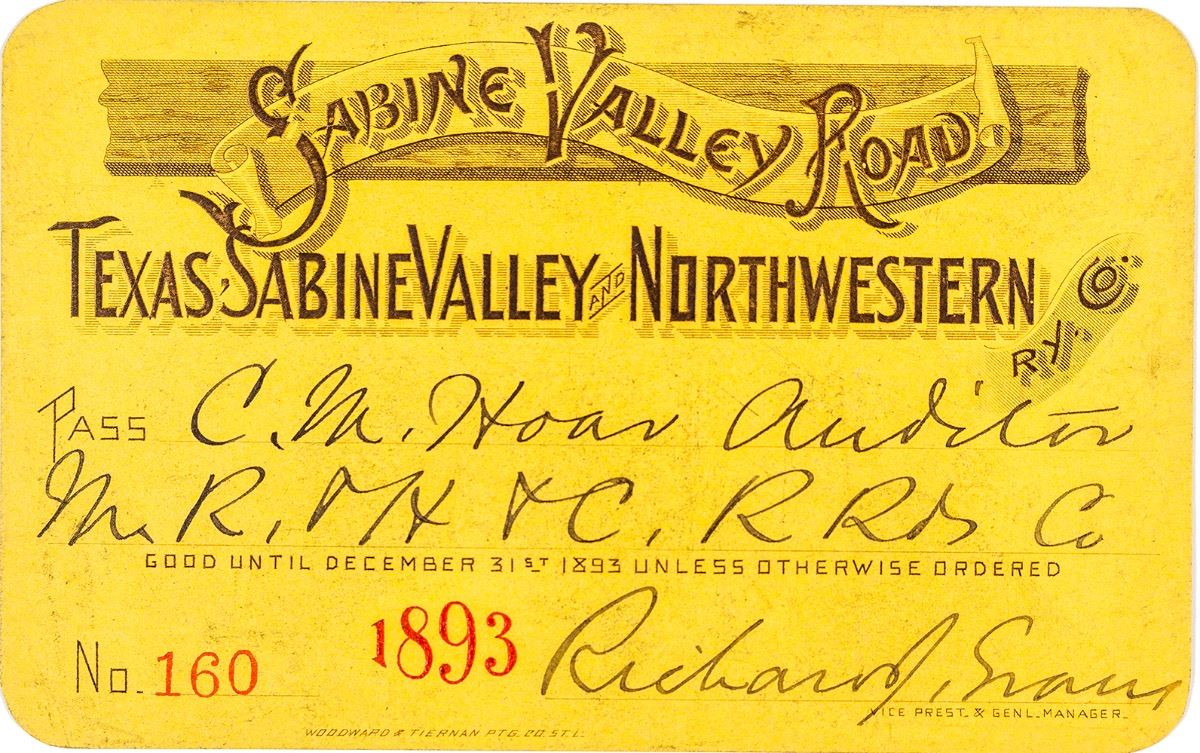 SABINE VALLEY ROAD
TEXAS, SABINE VALLEY AND NORTHWESTERN RY. CO.
PASS C. M. Hoar Auditor
R, & H & C, R Rds Co
GOOD UNTIL DECEMBER 31ST 1893 UNLESS OTHERWISE ORDERED
No. 160 1893 Richard J. Evans
VICE PREST. & GENL. MANAGER.
WOODWARD & TIERNAN PTG. CO. ST. L.